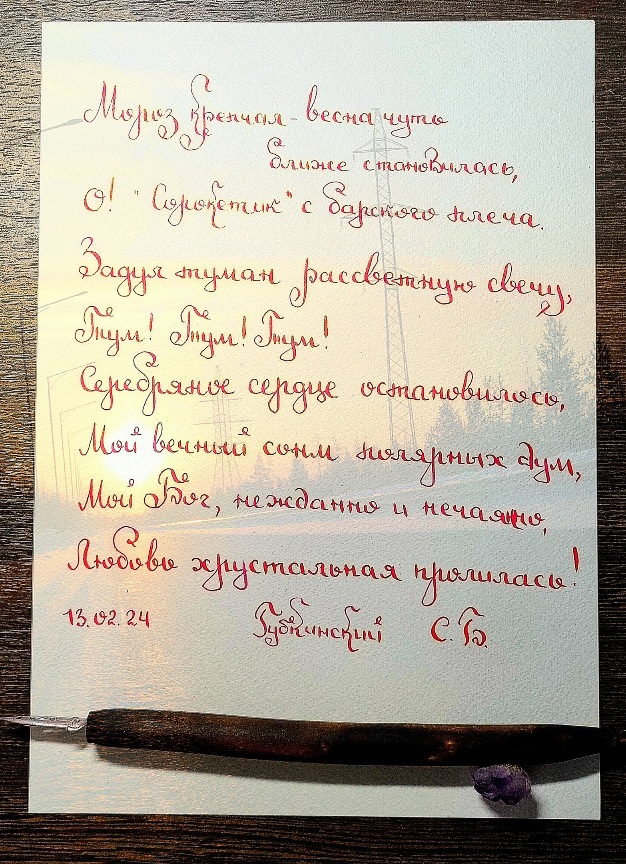 Мороз крепчал - весна чуть
ближе становилась,
О! "Сорокетик" с барского плеча.
Задул туман рассветную свечу,
Тум! Тум! Тум!
Серебряное сердце остановилось,
Мой вечный сонм полярных дум,
Мой Бог, нежданно и нечаянно,
Любовь хрустальная пролилась!
13.02.24 Губкинский С.Б.